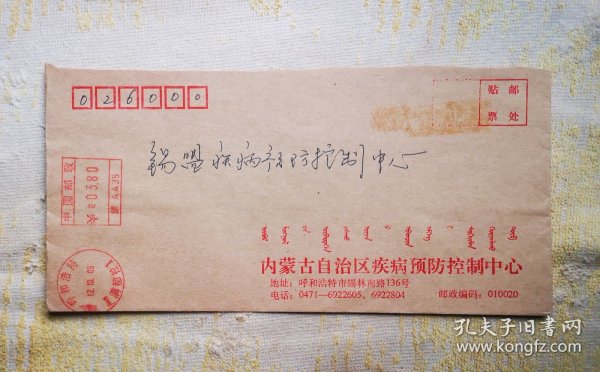 026000
贴邮
票处
锡盟疾病预防控制中心
中国邮政
03.80
内蒙古自治区疾病预防控制中心
地址：呼和浩特市锡林南路136号
电话：0471-6922605、6922804 邮政编码：010020
呼和浩特
孔夫子旧书网
www.kongfz.com